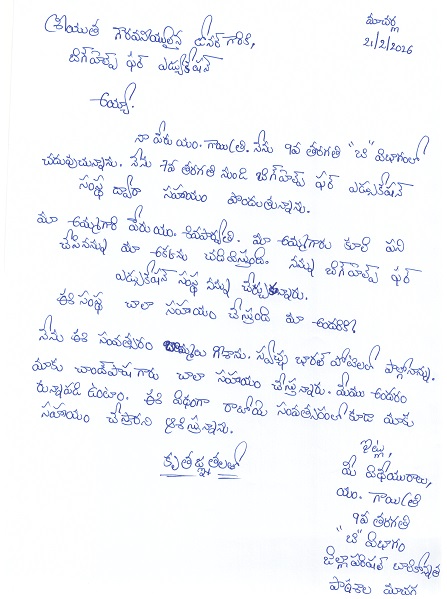 మాచర్ల
21/2/2026
శ్రీయుత గౌరవనీయులైన డోనర్ గారికి,
బిగ్‌హెల్ప్ ఫర్ ఎడ్యుకేషన్
అయ్యా.
నా పేరు యం. గాయిత్రి. నేను 9వ తరగతి "బి" విభాగంలో
చదువుచున్నాను. నేను 7వ తరగతి నుండి బిగ్‌హెల్ప్ ఫర్ ఎడ్యుకేషన్
సంస్థ ద్వారా సహాయం పొందుతున్నాను.
మా అమ్మగారి పేరు యం. శివపార్వతి. మా అమ్మగారు కూలి పని
చేసి నన్ను మా అక్కను చదివిస్తుంది. నన్ను బిగ్‌హెల్ప్ ఫర్
ఎడ్యుకేషన్ సంస్థ నన్ను చేర్చుకున్నారు.
ఈ సంస్థ చాలా సహాయం చేస్తుంది మా అందరికి.
నేను ఈ సంవత్సరం గీశాను. స్వచ్ఛ భారత్ పోటీలలో పాల్గొన్నాను.
మాకు చాంద్‌పాష గారు చాలా సహాయం చేస్తున్నారు. మేము అందరం
రుణపడి ఉంటాం. ఈ విధంగా రాబోయే సంవత్సరంలో కూడా మాకు
సహాయం చేస్తారని ఆశిస్తున్నాను.
కృతజ్ఞతలతో
ఇట్లు,
మీ విధేయురాలు,
యం. గాయిత్రి
9వ తరగతి
"బి" విభాగం
జిల్లా పరిషత్ బాలికోన్నత
పాఠశాల మాచర్ల